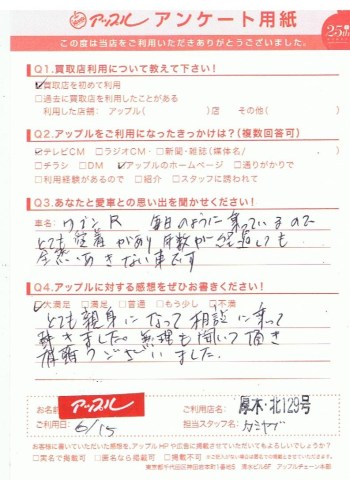 アップル アンケート用紙
25th
この度は当店をご利用いただきありがとうございました。
Q1.買取店利用について教えて下さい!
☑買取店を初めて利用
□過去に買取店を利用したことがある
利用した店舗: アップル( )店 その他( )
Q2.アップルをご利用になったきっかけは?(複数回答可)
☑テレビCM □ラジオCM・ □新聞・雑誌(媒体名/ )
□チラシ □DM ☑アップルのホームページ □通りがかりで
□利用経験があるので □紹介 □スタッフに誘われて
Q3.あなたと愛車との思い出を聞かせください!
車名: ワゴンR 毎日のように乗っているので
とても愛着があり年数が経過しても
全然いあきない車です
Q4.アップルに対する感想をぜひお書きください!
☑大満足 □満足 □普通 □もう少し □不満
とても親身になって相談に乗って
頂きました。無理も聞いて頂き
有難うございました。
お名前 アップル
ご利用店名: 厚木・北129号
ご利用日: 6/15
担当スタッフ名: カミヤグ
お客様に書いていただいた感想を、アップルHPや広告に掲載させていただいてもよろしいでしょうか?
□実名で掲載可 □匿名なら掲載可 □掲載不可
東京都千代田区神田岩本町1番地6 清水ビル6F アップルチェーン本部